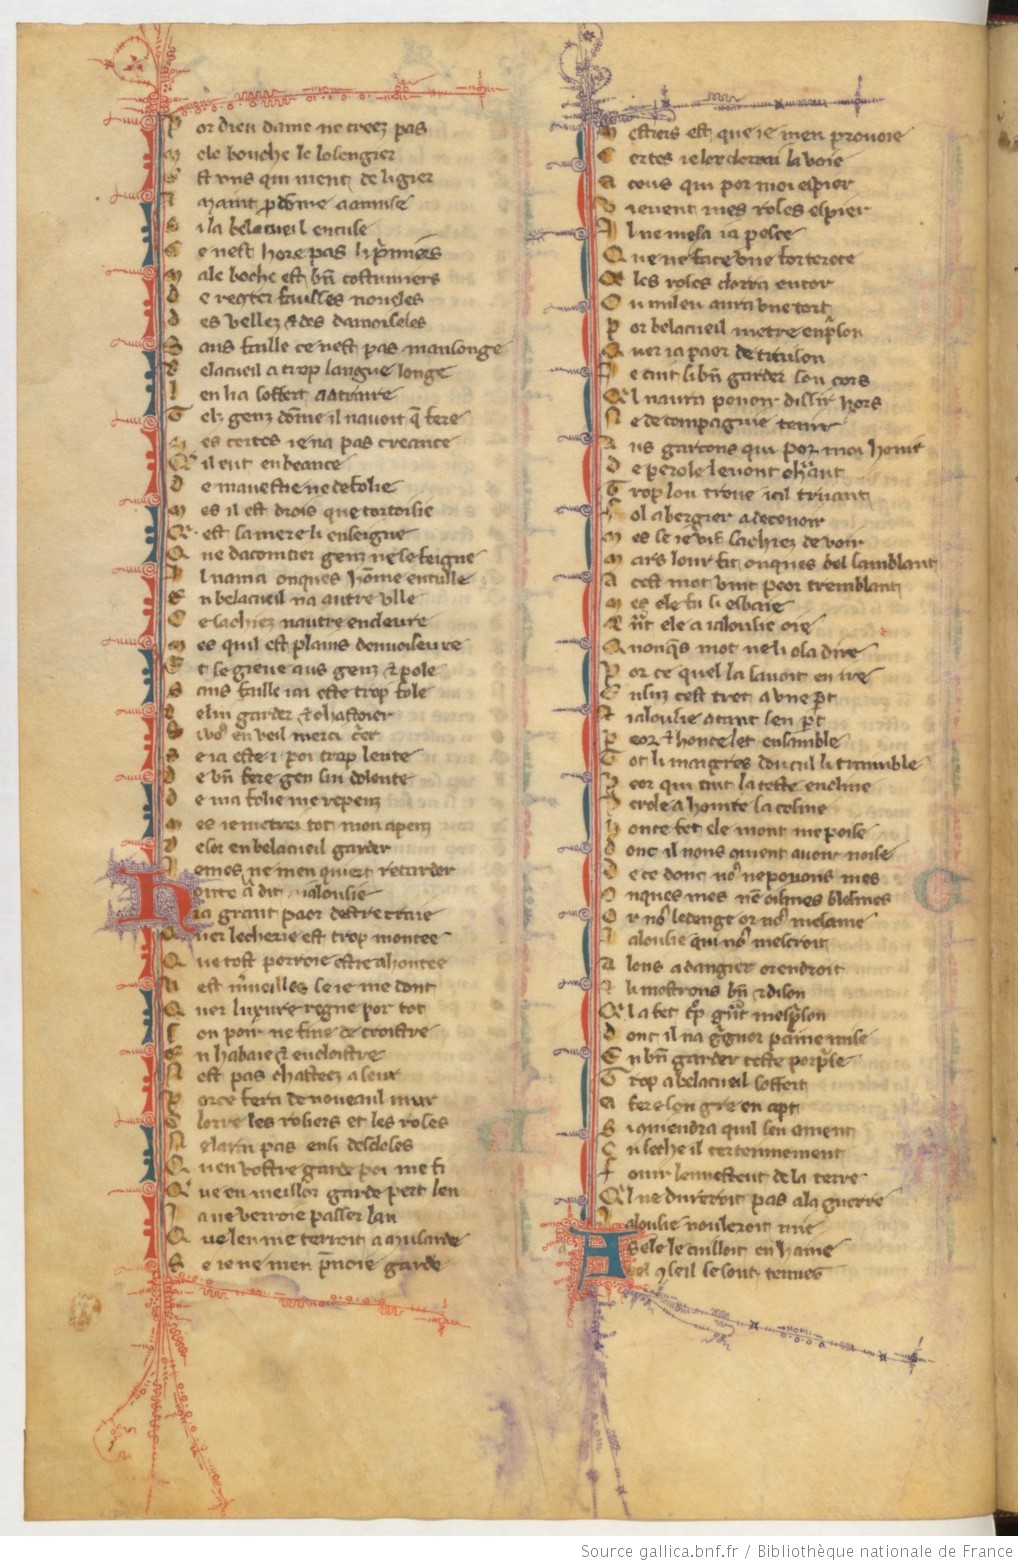 P or dieu dame ne creez pas
M ale bouche le losengier
C est uns qui ment de ligier
A maint p̱dome a amuse
S i la belacueil encuse
C e nest hore pas li p̄miers
M ale boche est bn̄ costumiers
D e reqter fausses noueles
D es vellez & des damoiseles
S ans faille ce nest pas mansonge
B elacueil a trop langue longe
I en li a soffert a atraire
T elx genz dōme il nauoit q̄ fere
M es certes ie na pas creance
Q il eut en beance
D e mauestie ne de folie
M es il est drois que cortoisie
Q est sa mere li enseigne
Q ue dacointier genz ne se feigne
I l nama onques hōme entulle
E n belacueil na autre ulle
C e sachiez nautre encloeure
M es quil est plains denuoiseure
E t se gieue aus genz & pole
S ans faille iai este trop fole
D e lui garder & chastoier
S i vo9 en veil merci c̄er
S e ia este i poi trop lente
D e bn̄ fere gen sui dolente
D e ma folie me repenz
M es ie metrei tot mon apenz
D e lor en belacueil garder
I emes ne men quiert retarder
H onte a dit ialousie
ia grant paor destre traie
Q uer lecherie est trop montee
Q ue tost porroie estre ahontee
N est mueilles se ie me dout
Q uer luxure regne por tot
S on pooir ne fine de croistre
E n habaie & en cloistre
N est pas chasteez a seur
P orce fera de nouueaul mur
C lorre les rosiers et les roses
N elarai pas ensi descloses
Q uen vostre garde poi me fi
Q ue en meillor garde pert len
I a ne verroie passer lan
Q ue len me terroit a musarde
S e ie ne men p̄ncie garde
M estiers est que ie men pronoie
C ertes ie lor clorrai la voie
A ceus qui por moi espier
V ienent mes roses espier
I l ne me sa ia pesce
Q ue ne face vne forterece
Q les roses clorra entor
O u milieu aura vne tort
P or belacueil metre enp̄son
Q uer ia paor de traison
I e cuit si bn̄ garder son cors
Q l naura pouoir dissir hors
N e de compagnie tenir
A us garcons qui por moi honir
D e perole le uont chūant
T rop lon troue icil truant
F ol a bergier a deceuoir
M es se ie vif sachiez de voir
M ars lour fit onques bel samblant
A cest mot vint peor tremblant
M es ele fu si esbaie
Q n̄t ele a ialousie oie
Q nonq̄s mot ne li osa dire
P or ce quel la sauoit en ire
E n sus cest tret a vne p̱t
E t ialousie atant sen p̱t
P eor & honte let ensamble
T ot li maigres dou cul li tramble
P eor qui tint la teste encline
P erole a honte sa cosine
H onte fet ele mont me poise
D ont il nous quient auoir noise
D e ce donc no9 ne pouons mes
O nques mes nē oismes blesmes
O r no9 ledenge or no9 mesame
I alousie qui no9 mescroit
A lons a dangier orendroit
S i li mostrons bn̄ & dison
Q l a fet t̄p g̑nt mesp̄son
D ont il na g̑gnor paine mise
E n bn̄ garder ceste porp̄se
T rop a belacueil soffert
A fere son gre en ap̱t
S i amendra quil sen ament
C n seche il certeinnement
F ouir lonuestent de la terre
Q l ne durroit pas a la guerre
I alousie nouleroit mie
A sele le cuilloit en haine